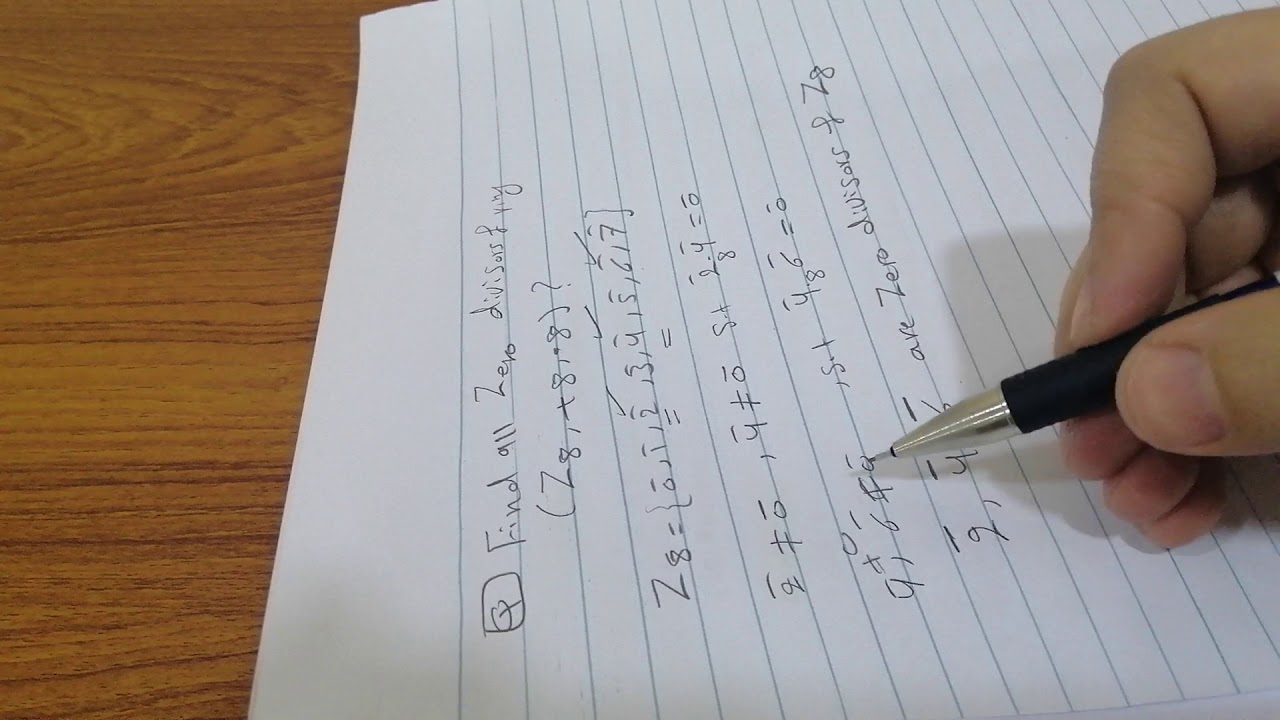 Q Find all Zero divisors of ring
(Z8, +8, .8)?
Z8={0̄,1̄,2̄,3̄,4̄,5̄,6̄,7̄}
2̄≠0̄, 4̄≠0̄ s.t 2̄.₈4̄=0̄
4̄≠0̄, 6̄≠0̄, s.t 4̄.₈6̄=0̄
2̄, 4̄, 6̄ are Zero divisors of Z8